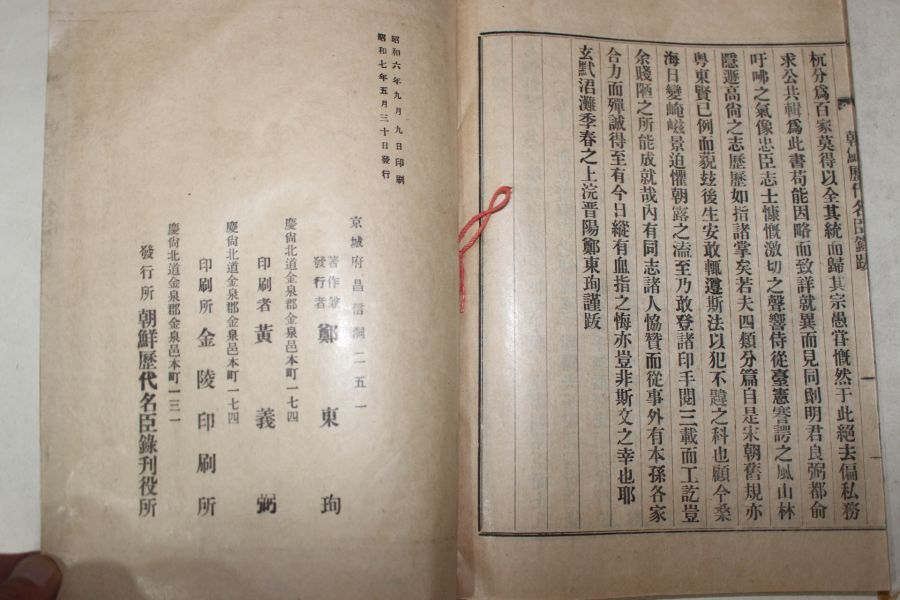 朝鮮歷代名臣錄跋
杭分爲百家莫得以全其統而歸其宗愚甞慨然于此絕去偏私務
求公共輯爲此書苟能因略而致詳就異而見同則明君良弼都兪
吁咈之氣像忠臣志士慷慨激切之聲響侍從臺憲謇諤之風山林
隱遯高尙之志歷歷如指諸掌矣若夫四類分篇自是宋朝舊規亦
粤東賢已例而藐玆後生安敢輒遵斯法以犯不韙之科也顧今桑
海日變崦嵫景迫懼朝露之溘至乃敢登諸印手閱三載而工訖豈
余賤陋之所能成就哉內有同志諸人協贊而從事外有本孫各家
合力而殫誠得至有今日縱有血指之悔亦豈非斯文之幸也耶
玄默涒灘季春之上浣晋陽鄭東珣謹跋
昭和六年九月九日印刷
昭和七年五月三十日發行
京城府昌信洞二五一
著作兼發行者 鄭東珣
慶尙北道金泉郡金泉邑本町一七四
印刷者 黃義弼
慶尙北道金泉郡金泉邑本町一七四
印刷所 金陵印刷所
慶尙北道金泉郡金泉邑本町一三一
發行所 朝鮮歷代名臣錄刊役所